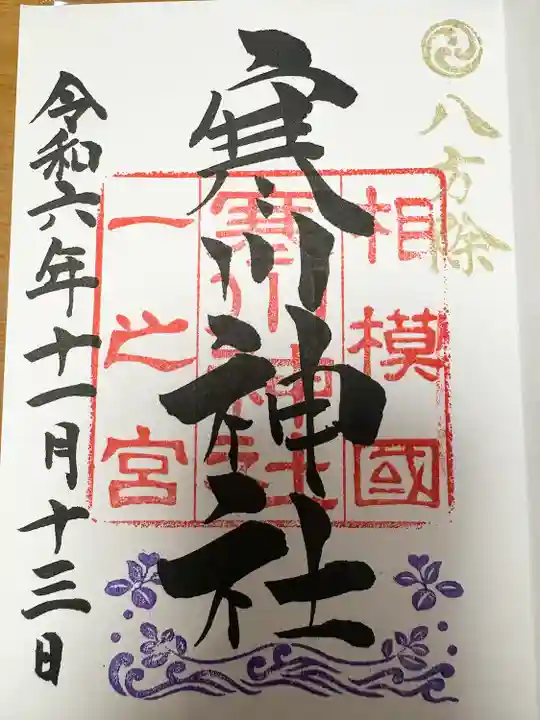 八方除
相模國
寒川神社
一之宮
寒川神社
令和六年十一月十三日